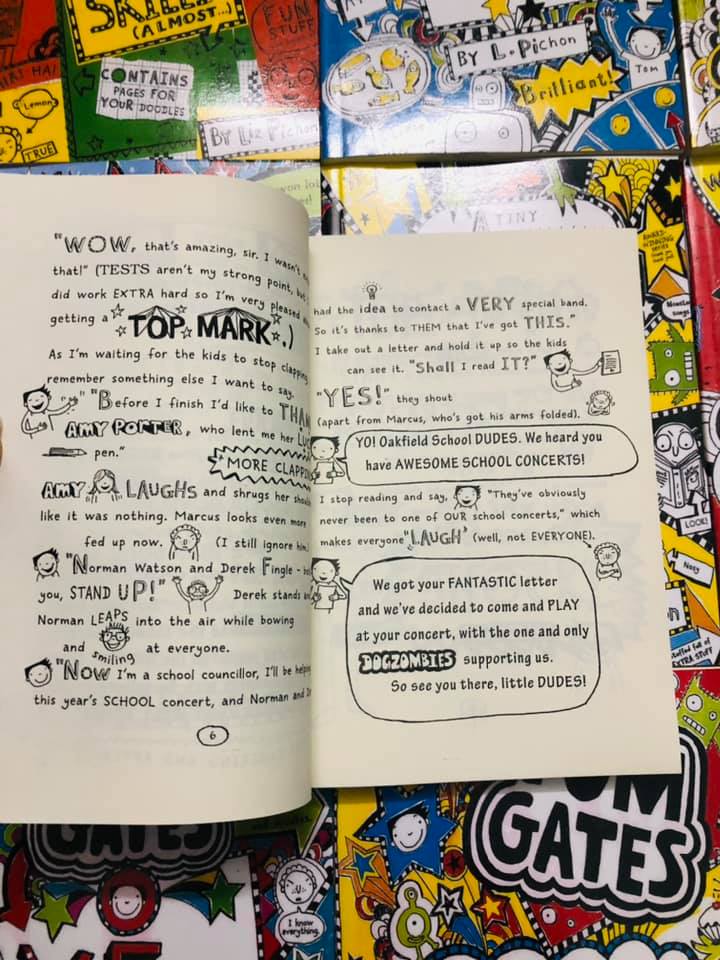 SKILLS
(ALMOST...)
FUN
STUFF
CONTAINS
PAGES FOR
YOUR DOODLES
Lemon
TRUE
BY Liz Pichon
BY L. Pichon
TOM
Brilliant!
"WOW, that's amazing, sir. I wasn't
that!" (TESTS aren't my strong point, but
did work EXTRA hard so I'm very pleased
getting a TOP MARK.)
As I'm waiting for the kids to stop clapping
remember something else I want to say.
"Before I finish I'd like to
AMY PORTER, who lent me her
pen."
MORE CLAPPIN
AMY LAUGHS and shrugs her
like it was nothing. Marcus looks even more
fed up now. (I still ignore him
"Norman Watson and Derek Fingle -
you, STAND UP!" Derek stands
Norman LEAPS into the air while bowing
and smiling at everyone.
"Now I'm a school councillor, I'll be
this year's SCHOOL concert, and Norman and
6
had the idea to contact a VERY special band.
So it's thanks to THEM that I've got THIS."
I take out a letter and hold it up so the kids
can see it. "Shall I read IT?"
"YES!" they shout
(apart from Marcus, who's got his arms folded).
YO! Oakfield School DUDES. We heard you
have AWESOME SCHOOL CONCERTS!
I stop reading and say, "They've obviously
never been to one of OUR school concerts," which
makes everyone "LAUGH" (well, not EVERYONE).
We got your FANTASTIC letter
and we've decided to come and PLAY
at your concert, with the one and only
DOGZOMBIES supporting us.
So see you there, little DUDES!
TINY
AWARD-
WINNING
series
LOOK!
Nosy
stuffed full of
EXTRA STUFF
GATES
TOM
GATES
I know
everything.